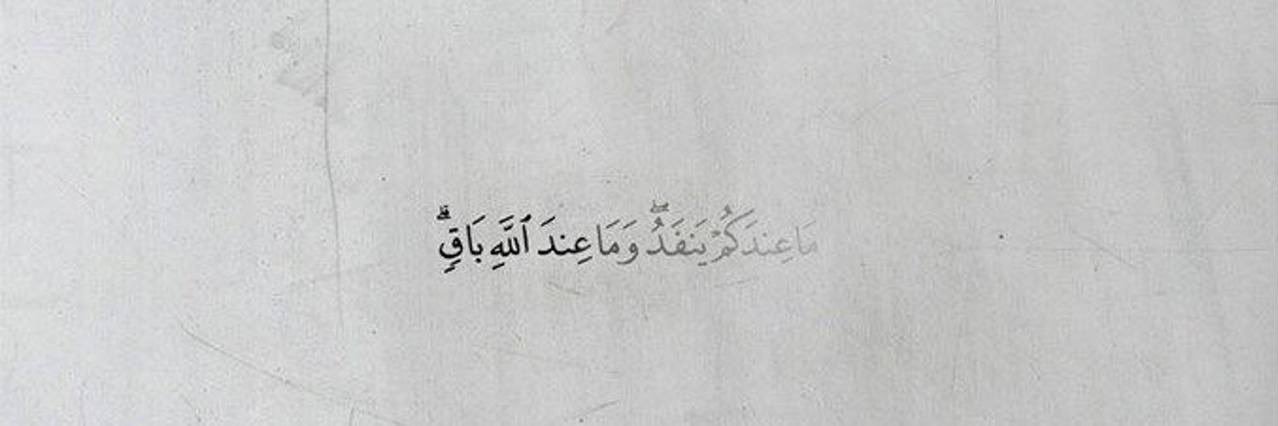 مَا عِندَكُمْ يَنفَدُ ۖ وَمَا عِندَ ٱللَّهِ بَاقٍ ۗ